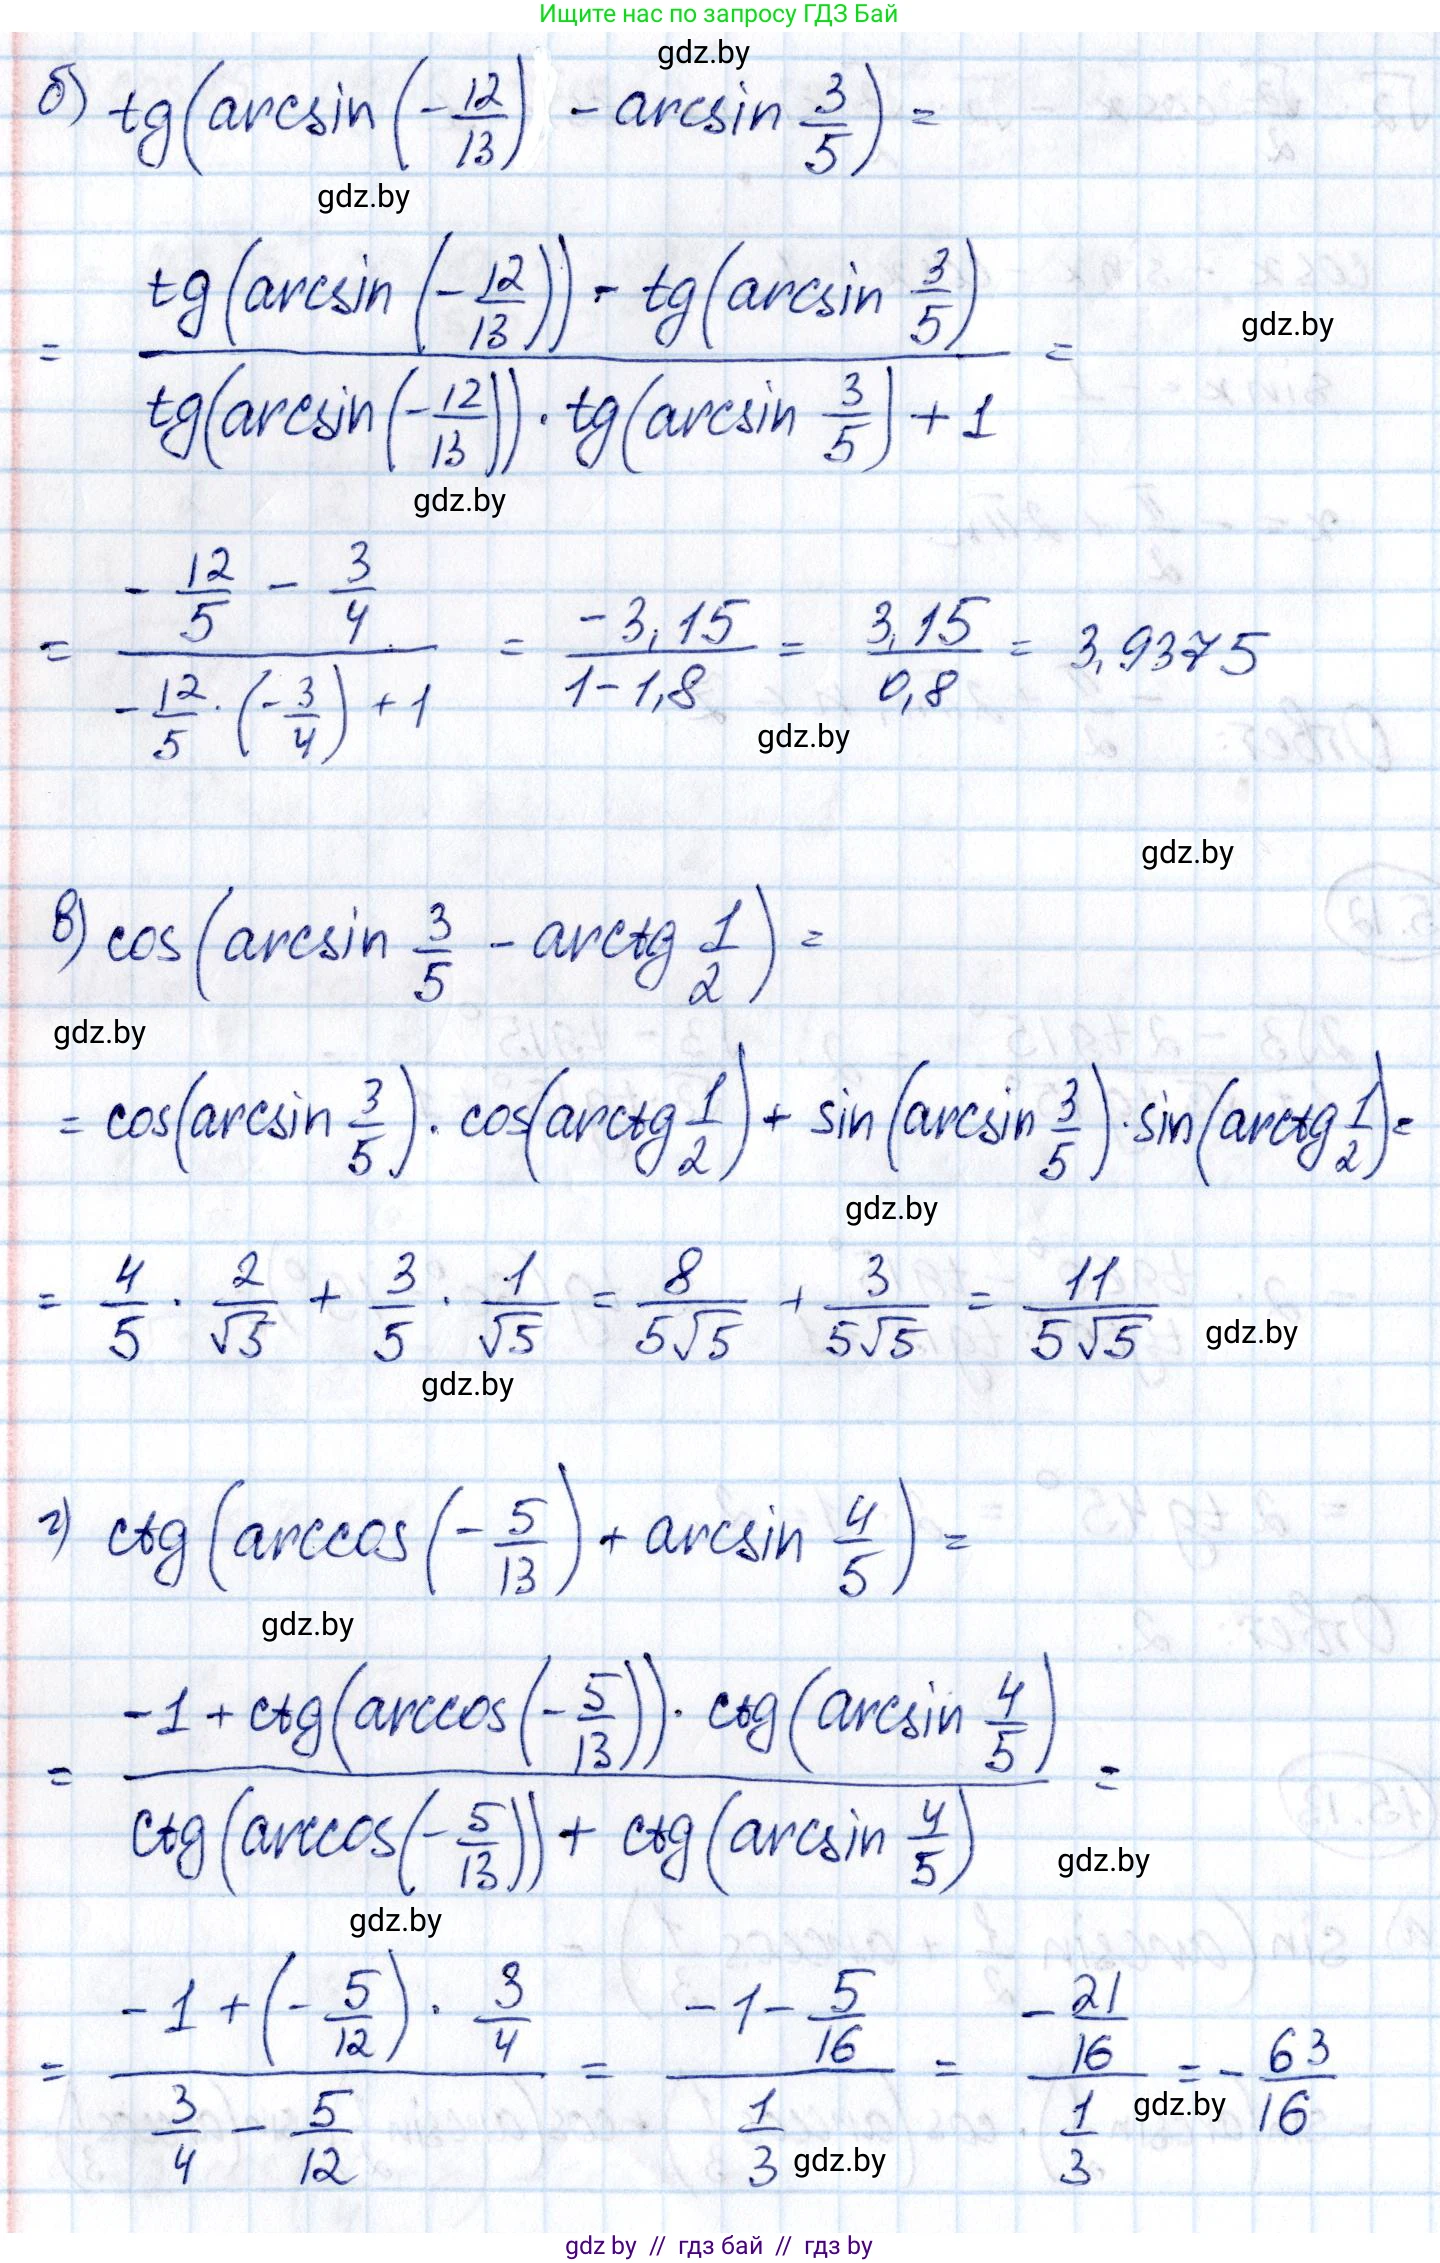 Ищите нас по запросу ГДЗ Бай
gdz.by
б) tg(arcsin(-12/13) - arcsin 3/5) =
gdz.by
= (tg(arcsin(-12/13)) - tg(arcsin 3/5)) / (tg(arcsin(-12/13)) · tg(arcsin 3/5) + 1) =
gdz.by
gdz.by
= (-12/5 - 3/4) / (-12/5 · (-3/4) + 1) = -3,15 / (1-1,8) = 3,15 / 0,8 = 3,9375
gdz.by
gdz.by
в) cos(arcsin 3/5 - arctg 1/2) =
gdz.by
= cos(arcsin 3/5) · cos(arctg 1/2) + sin(arcsin 3/5) · sin(arctg 1/2) =
gdz.by
= 4/5 · 2/√5 + 3/5 · 1/√5 = 8/5√5 + 3/5√5 = 11/5√5
gdz.by
gdz.by
г) ctg(arccos(-5/13) + arcsin 4/5) =
gdz.by
= (-1 + ctg(arccos(-5/13)) · ctg(arcsin 4/5)) / (ctg(arccos(-5/13)) + ctg(arcsin 4/5)) =
gdz.by
gdz.by
= (-1 + (-5/12) · 3/4) / (3/4 - 5/12) = (-1 - 5/16) / (1/3) = (-21/16) / (1/3) = -63/16
gdz.by
gdz.by
gdz.by // гдз бай // гдз by